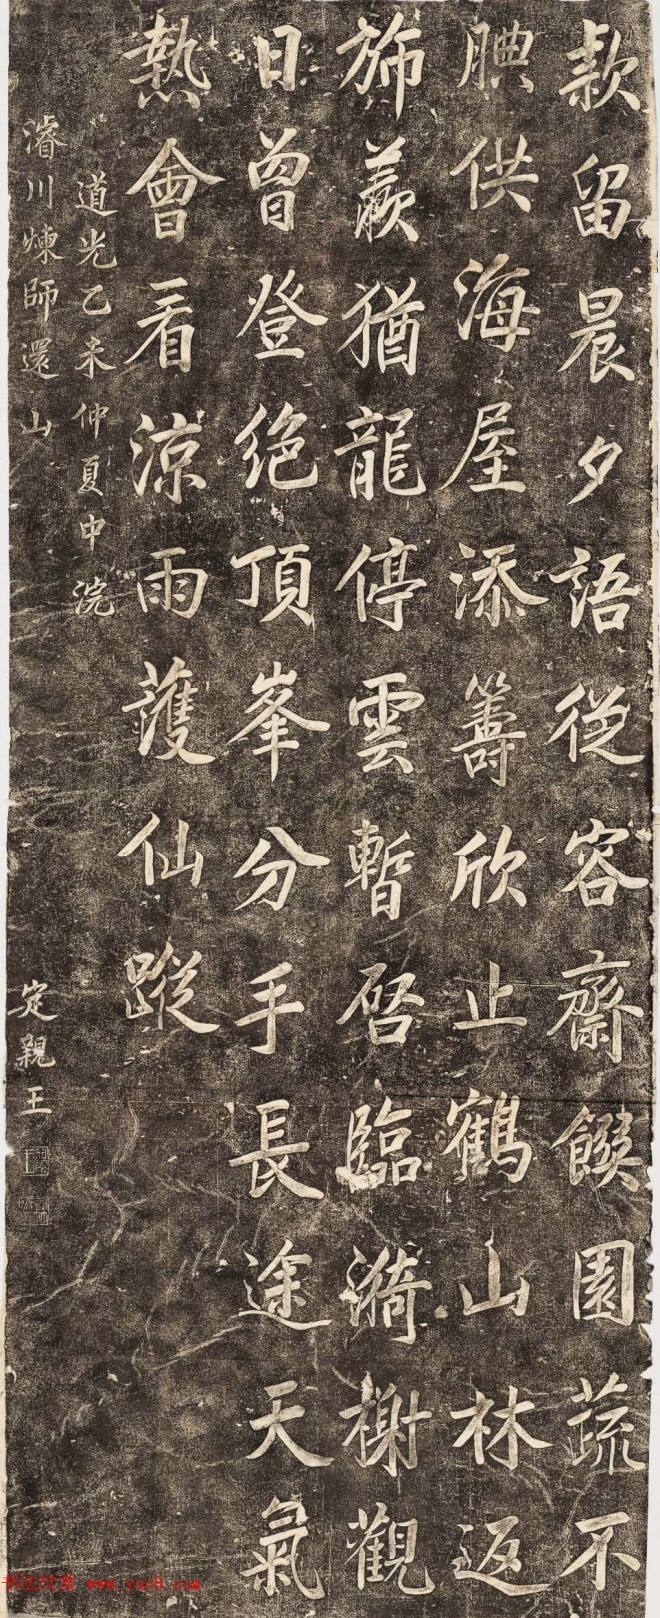 款留晨夕語從容齋饌園蔬不
腆供海屋添籌欣止鶴山林返
旆羨猶龍停雲暫啓臨漪榭觀
日曾登絶頂峯分手長途天氣
熱會看涼雨護仙蹤
道光乙未仲夏中浣
濬川煉師還山
定親王
www.yac8.com